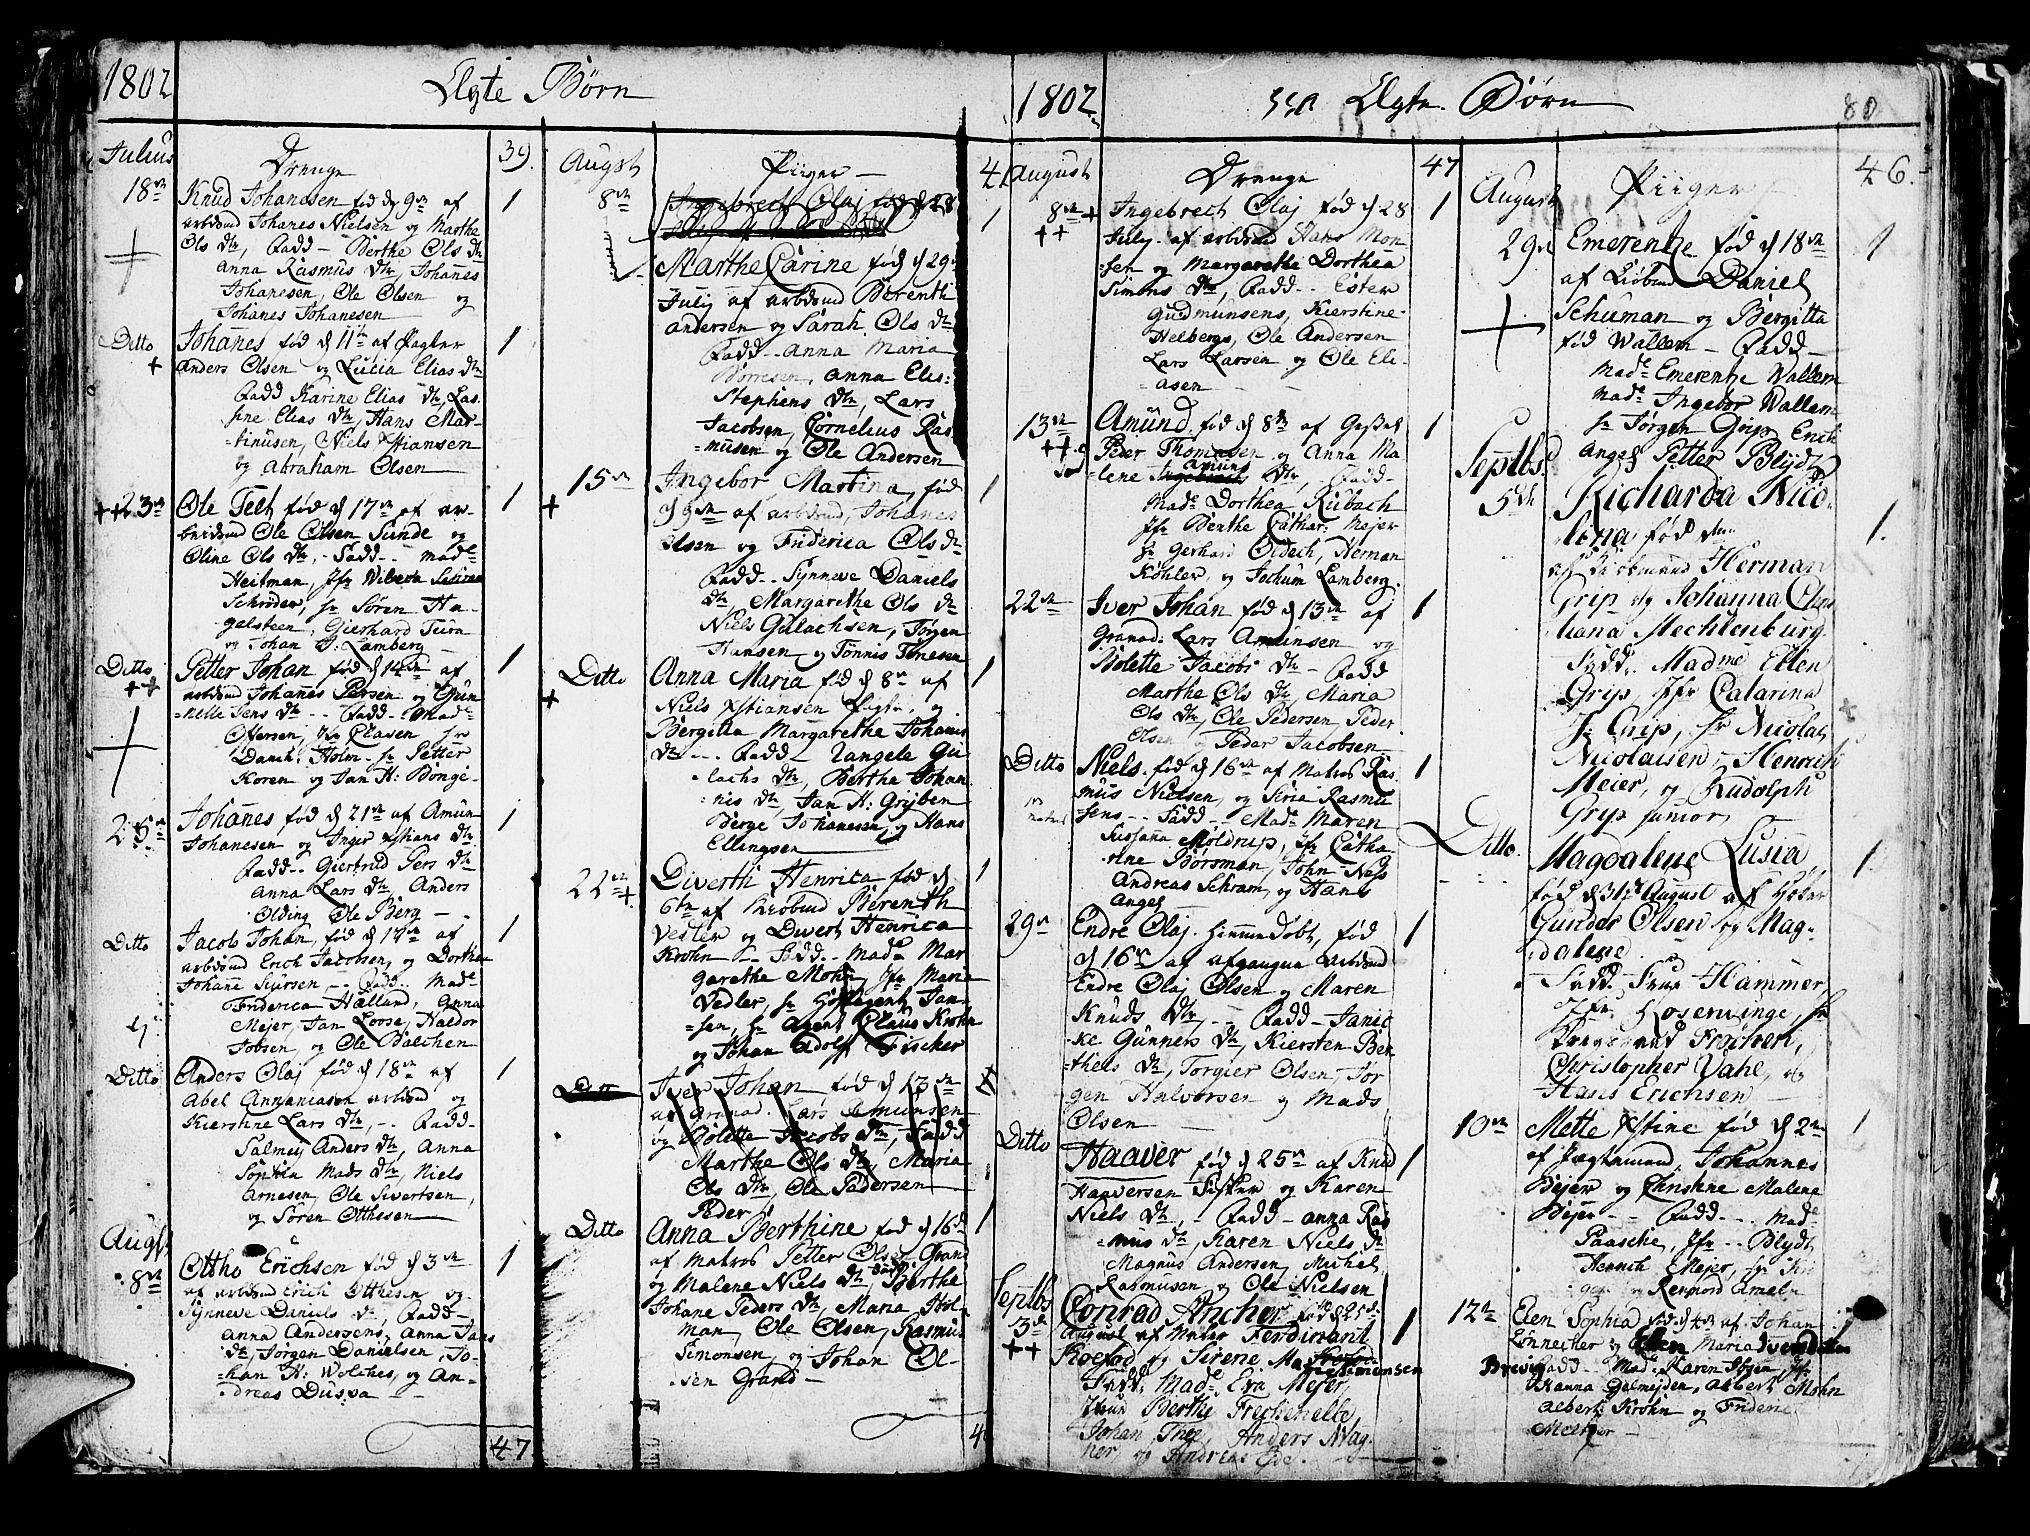 1802
Ægte Børn
Julius
Drenge
39.
18de
Knud Johanesen fød d 9de af
1
arbdsmd Johanes Nielsen og Marthe
Ols dtr, Fadd - Berthe Ols dtr
Anna Rasmus dtr, Johanes
Johanesen, Ole Olsen og
Johanes Johanesen
Ditto
Johanes fød d 11te af Pagter
1
Anders Olsen og Lucia Elias dtr
Fadd Karine Elias dtr, Las-
sine Elias dtr, Hans Mar-
tinusen, Niels Xstiansen
og Abraham Olsen
23de
Ole Telt fød d 17de af ar-
1
beidsmd Ole Olsen Sunde og
Oline Ols dtr, - Fadd - Made
Heitman, Jfr
Schrøder, hr Søren Ha-
gelsteen, Gierhard
og Johan J: Lamberg
Ditto
Petter Johan fød d 14de af
1
arbdsmd Johanes Persen og Gun-
nelle Jens dtr - Fadd - Made
Ofersen, Jfr Clasen hr
Danch. Holm - hr Petter
Koren og Jan H: Bonge-
25de
Johanes fød d 21de af Amun
1
Johanesen og Inger Xstians dtr
Fadd - Giertrud Pers dtr
Anna Lars dtr, Anders
Olding Ole Berg
Ditto
Jacob Johan, fød d 17de af
1
arbdsmd Erich Jacobsen, og Dorthea
Johane Siursen - Fadd. Made
Friderica Hælland, Anna
Mejer, Jan Loose, Haldor
Jobsen, og Ole Balchen
Ditto
Anders Olaj fød d 18de af
1
Abel Annaniasen arbdsmd og
Kierstine Lars dtr, - Fadd -
Salmey Anders dtr, Anna
Sophia Mads dtr, Niels
Arnesen, Ole Sivertsen,
og Søren Otthesen
Augst
8de
Ottho Erichsen fød d 3de
1
af arbdsmd Erich Otthesen og
Synneve Daniels dtr, Fadd -
Anna Andersens, Anna Jans
dtr, Jørgen Danielsen, Jo-
han H: Woltches, og An-
dreas Dusva
47
Augst
Piiger
8de
Ingebrect Olaj fød d 28
1
Marthe Carine fød d 29de
July af arbdsmd Berenth
Andersen og Sarah Ols dtr
Fadd - Anna Maria
Børresen, Anna Elis-
Stephens dtr, Lars
Jacobsen, Cornelius Ras-
musen og Ole Andersen
15de
Ingebor Martina, fød
1
d 9de af arbdsmd, Johanes
Olsen og Friderica Ols dtr
Fadd - Synneve Daniels
dtr, Margarethe Ols dtr
Niels Gulachsen, Jørgen
Hansen og Tønnis Tønesen
Ditto
Anna Maria fød d 8de af
1
Niels Xstiansen Pagter, og
Bergitta Margarethe Johanis
dtr - Fadd - Rangele Gu-
lachs dtr, Berthe Johan-
nis dtr, Jan H: Grijben
Berge Johanesen, og Hans
Ellingsen
22de
Diverth Henrica fød d
1
6te af Kiøbmd Berenth
Vedler og Divert Henrica
Krohn - Fadd - Made Mar-
garethe Mohn, Jfr Maria
Vedler, hr Hofagent Jan-
sen, hr Agent Claus Krohn
og Johan Adolff Fischer
Ditto
Iver Johan fød d 13de
af Granad. Lars Amunsen
og Bolette Jacobs dtr, Fadd
Marthe Ols dtr, Maria
Ols dtr, Ole Pedersen
Peder
Ditto
Anna Berthine fød d 16de
1
af Matros Petter Olsen Grand
og Malene Niels dtr, Fadd Berthe
Johane Peders dtr, Maria Hol-
man, Ole Olsen, Rasmus
Simonsen, og Johan Ol-
sen Grand
1802
Ægte Børn
80
August
Drenge
47
8de
Ingebrech Olaj fød d 28
1
July. af arbdsmd Hans Mon-
sen og Margarethe Dorthea
Simens dtr, Fadd - Ester
Gudmunsens, Kierstine
Helbergs, Ole Andersen
Lars Larsen og Ole Eli-
asen
13de
Amund, fød d 8de af
1
Peder Thomasen og Anna Ma-
lene Amuns dtr, Fadd -
Made Dorthea Rubach
Jfr Benthe Cathar: Mejer
hr Gerhard Oldech, Herman
Køhler, og Jochum Lamberg.
22de
Iver Johan fød d 13de af
1
Granad. Lars Amunsen og
Bolette Jacobs dtr - Fadd
Marthe Ols dtr, Maria
Ols dtr, Ole Pedersen, Peder
Olsen og Peder Jacobsen
Ditto
Niels fød d 16de af Matros Ras-
1
mus Nielsen, og Siria Rasmu
sens - Fadd - Made Maren
Susanna Moldrup, Jfr Catha-
rine Borsman, John Næss
Andreas Schram, og Hans
Angel
29de
Endre Olaj. hiemmedøbt, fød
1
d 16de af afgangne arbdsmd
Endre Olaj Olsen og Maren
Knuds dtr, - Fadd - Janic
ke Gunners dtr, Kiersten Ber-
thels dtr, Torgier Olsen, Jor-
gen Halvorsen og Mads
Olsen
Ditto
Haaver fød d 25de af Knud
1
Haaversen Fisker og Karen
Niels dtr, - Fadd - Anna Ras-
mus dtr, Karen Niels dtr
Magnus Andersen, Michel
Rasmusen og Ole Nielsen
Septbs
3de
Conrad Ancher, fød d 25de
1
August af Ferdinant
Roestad og Sirene
Fadd. Made Eva Mejer,
Berthe Frechenelle,
Johan Thee, Anders Wag-
ner, og Andreas
August
Piiger
46.
29de
Emerentze fød d 18de
1
af Kiøbmd Daniel
Schuman og Bergitta
fød Wallem - Fadd -
Made Emerentze Wallem
Made Ingebor Wallem
hr Jørgen Grip, Erich
Angel Petter Blydt
Septbs.
5de
Richarda Nico-
lina fød den
1.
af Kiøbmand Herman
Grip og Johanna Chris-
tiana Mechlenburg.
Fadd. Madme Ellen
Grip, Jfr Catarina
J: Grip, hr Nicolay
Nicolaisen, Henrich
Meier, og Rudolph
Grip junior,
Ditto.
Magdalene Lusia,
1.
fød d 31te August af
Gunder Olsen og Mag-
dalene
Fadd. Frue Hammer,
Jfr. Rosenvinge, hr
Frøchen,
Christopher Dahl, og
Hans Erichsen
10de
Mette Xstine fød d 2de
1
af Johannes
Beyer og Christine Malene
Beyer - Fadd - Made
Paasche, Jfr - Blydt
Henrich Mejer,
og Reinhord
12te
Elen Sophia fød d 4de af Johan
Lønnecher og Elen Maria
Fadd - Made Karen
Hanna, Albert Mohn
Albert Krohn og Frideric
Meltzer